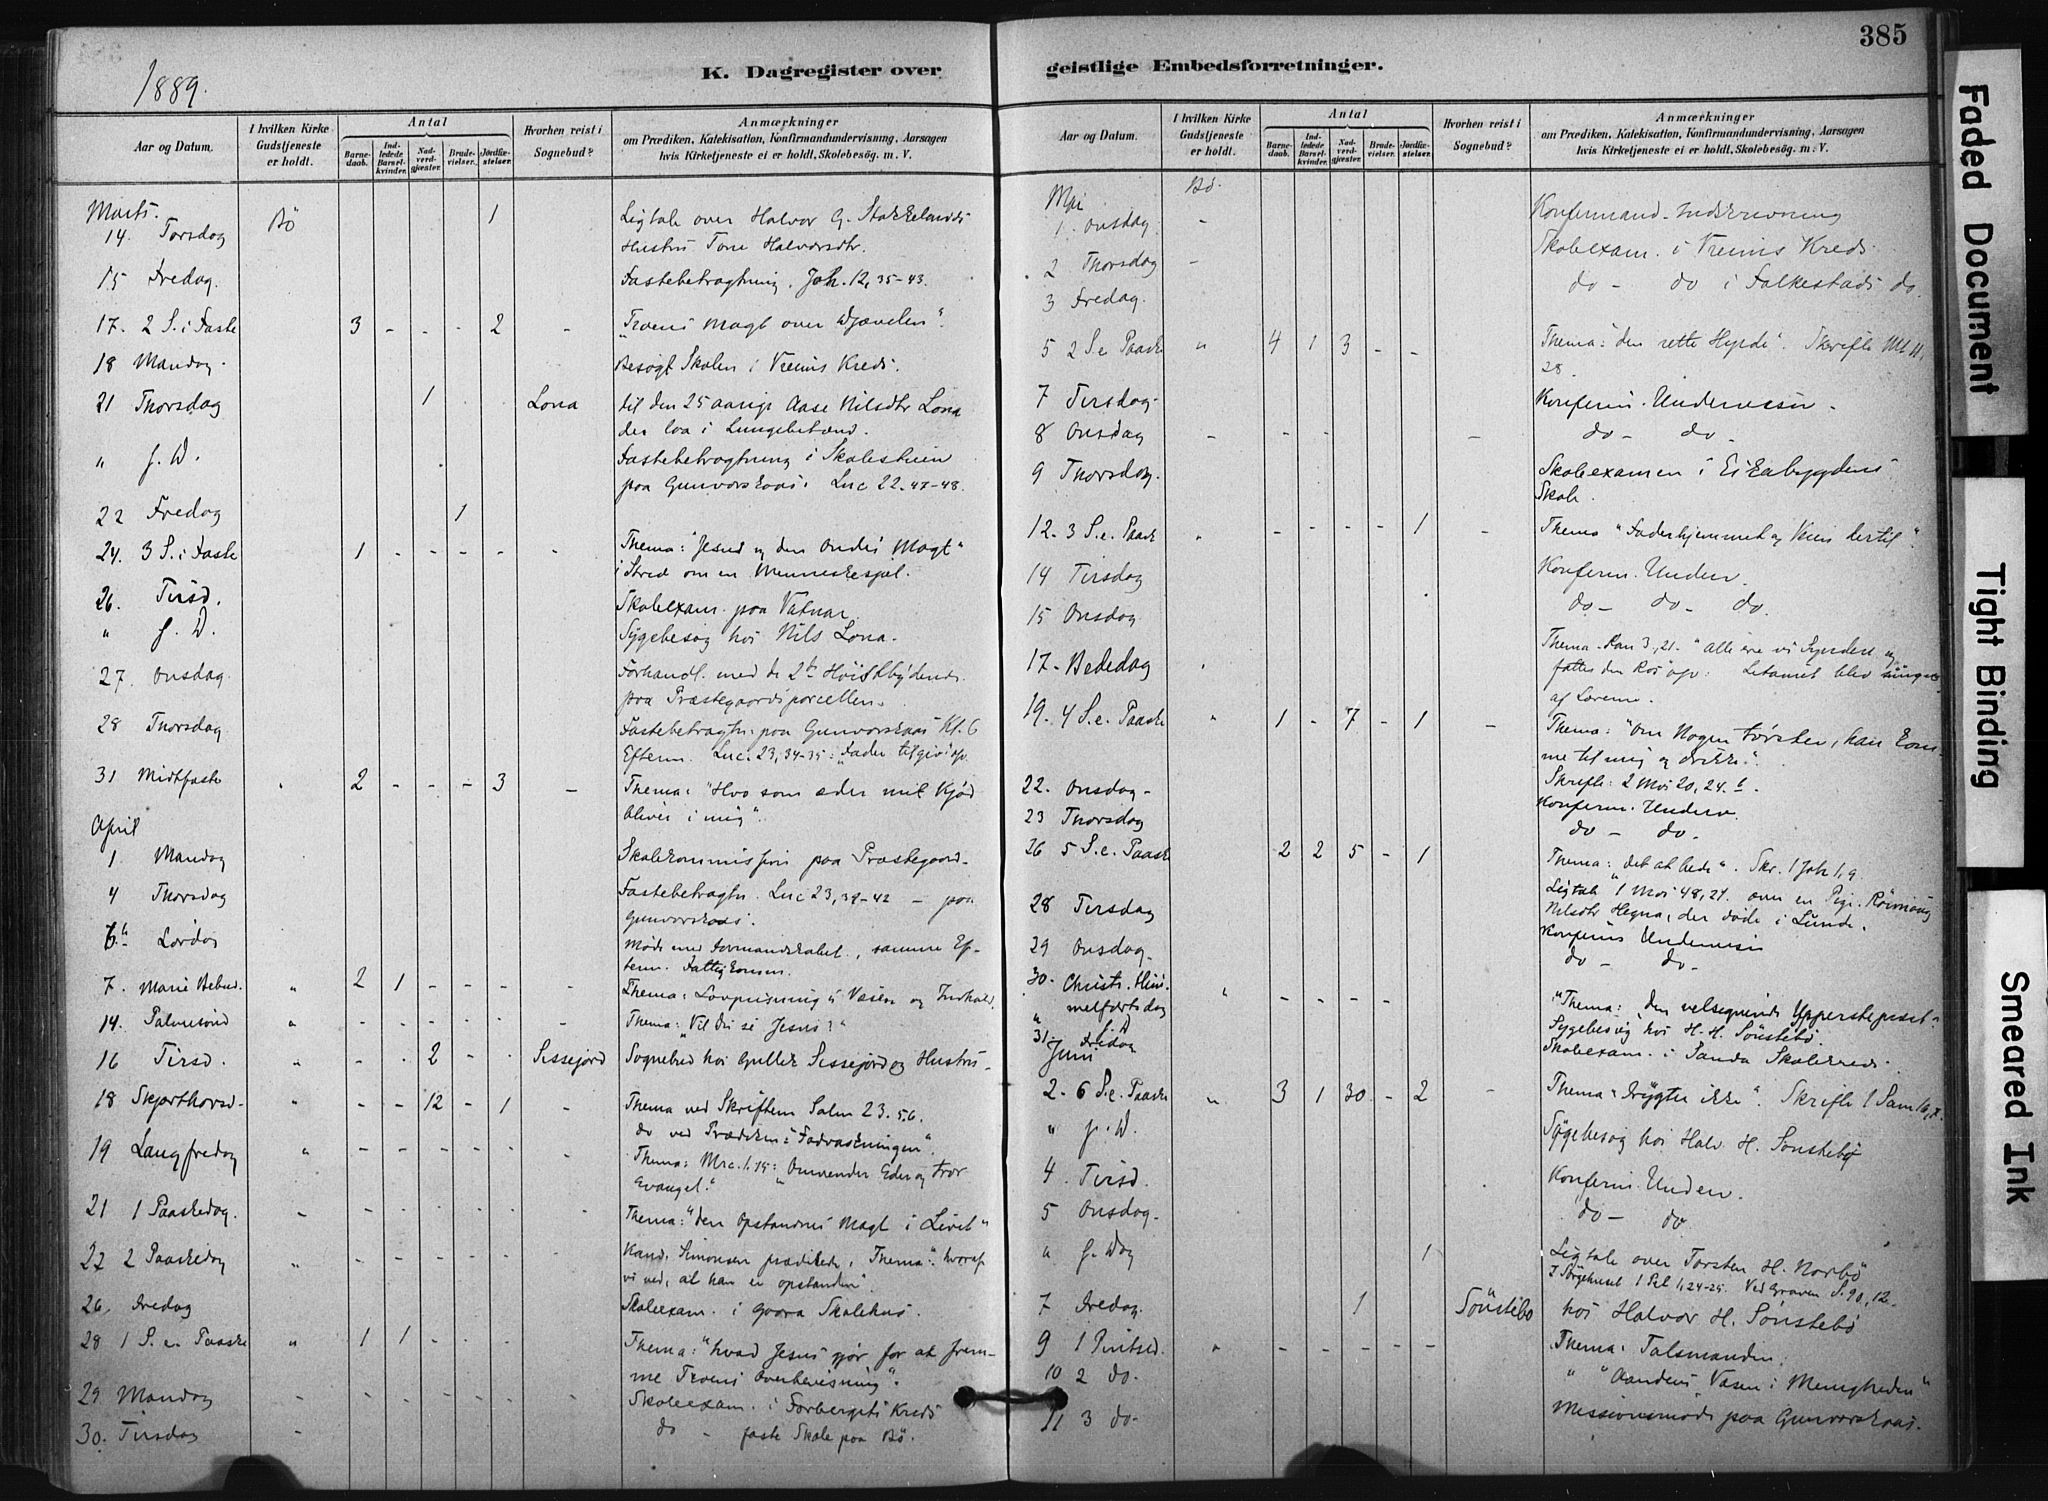 385
1889.
K. Dagregister over
geistlige Embedsforretninger.
Aar og Datum.
I hvilken Kirke Gudstjeneste er holdt.
Antal
Barnedaab.
Indledede Barselkvinder.
Nadverdgjæster.
Brudevielser.
Jordfæstelser.
Hvorhen reist i Sognebud?
Anmærkninger
om Prædiken, Katekisation, Konfirmandundervisning, Aarsagen
hvis Kirketjeneste ei er holdt, Skolebesøg. m. V.
Marts.
14. Torsdag Bö 1 Ligtale over Halvor G. Stokkelands
Hustru Tone Halvorsdtr.
15 Fredag. Fastebetragtning. Joh. 12, 35-43.
17. 2 S. i Faste 3 - - - 2 - "Troens Magt over Djævelen".
18 Mandag. Besøgt Skolen i Vreims Kreds.
21 Thorsdag 1 Lona til den 25 aarige Aase Nilsdtr Lona
der laa i Lungebetænd.
" s. D. Fastebetragtning i Skolestuen
paa Gunvorskaas: Luc 22.47-48.
22 Fredag 1
24. 3 S. i Faste 1 - - - - - Thema: "Jesus og den Ondes Magt"
i Strid om en Menneskesjæl.
26. Tirsd. Skoleexam. paa Vatnar
" s. D. Sygebesøg hos Nils Lona.
27. Onsdag. Forhandl. med de
paa Præstegaardsparcellen.
28 Thorsdag Fastebetragtn. paa Gunvorskaas Kl. 6
Efterm. Luc. 23, 34-35: "Fader tilgiv" osv.
31 Midtfaste 2 - - - 3 - Thema: "Hvo som æder mit Kjød
bliver i mig".
April
1. Mandag Skolekommission paa Præstegaard.
4 Thorsdag Fastebetragtn. Luc 23, 39-42 - paa
Gunvorskaas.
6. Lørdag Møde med Formandskabet, samme Ef-
term. Fattigkomm.
7. Mariæ Bebud. " 2 1 - - - - Thema: Lovprisning, Væsen og Indhold.
14. Palmesønd " - - - - - - Thema: "Vil du se Jesus?"
16 Tirsd. " - - 2 - - Sissejord Sognebud hos Gullek Sissejord og Hustru.
18 Skjærthorsd. " - - 12 - 1 - Thema ved Skriftem Salm 23. 5,6.
do ved Prædiken: "Fodvaskningen".
19 Langfredag " - - - - - - Thema: Mrc. 1, 15: "Omvender Eder og tror
Evangel."
21 1 Paaskedag. - - - - - - - Thema: "den Opstandnes Magt i Livet"
22 2 Paaskedag " - - - - - Kand. Simonsen prædikede, Thema: "hvoraf
vi ved, at han er opstanden".
26. Fredag Skoleexam. i Goara Skolehus.
28 1 S. e. Paaske " 1 1 - - - Thema: "hvad Jesus gjør for at frem-
me Troens Overbevisning".
29 Mandag - Skoleexam. i Forbergets Kreds
30. Tirsdag - do - faste Skole paa Bö.
Aar og Datum.
I hvilken Kirke Gudstjeneste er holdt.
Antal
Barnedaab.
Indledede Barselkvinder.
Nadverdgjæster.
Brudevielser.
Jordfæstelser.
Hvorhen reist i Sognebud?
Anmærkninger
om Prædiken, Katekisation, Konfirmandundervisning, Aarsagen
hvis Kirketjeneste ei er holdt, Skolebesøg. m. V.
Mai Bö.
1. Onsdag - Konfirmand-Indskrivning
2 Thorsdag - Skoleexam. i Vreims Kreds
3 Fredag. do - do i Folkestads do.
5 2 S. e. Paaske " 4 1 3 - - Thema: "den rette Hyrde". Skriftl. Mt 11,
28.
7 Tirsdag. Konfirm. Undervisn.
8 Onsdag - - - - - do - do.
9 Thorsdag. Skoleexamen i Eikabygdens
Skole.
12. 3 S. e. Paaske " - - - - 1 - Thema "Faderhjemmet og Veien dertil".
14 Tirsdag Konfirm. Underv.
15 Onsdag do - do - do.
17. Bededag Thema Rom 3, 21. "alle ere vi Syndere og
fattes den Ros" osv: Litaniet blev sunget
af Lærerne.
19. 4 S. e. Paaske " 1 - 7 - 1 - Thema: "Om Nogen tørster, han kom-
me til mig og drikke".
Skriftl: 2 Mos 20, 24. b.
22. Onsdag - Konfirm. Underv.
23 Thorsdag do - do.
26 5 S. e. Paaske 2 2 5 - 1 Thema: "det at bede". Skr. 1 Joh 1, 9.
Ligtale 1 Mos 48, 21. over en Pige
Nilsdtr Hegna, der døde i Lunde.
28 Tirsdag Konfirm Undervisn
29 Onsdag. do - do.
30. Christi Him-
melfartsdag " - - - - - "Thema: "Den velsignende Ypperstepræst".
" s. D Sygebesøg hos H. H. Sönstebö.
31. Fredag Skoleexam. i Sanda Skolekreds.
Juni
2. 6 S. e. Paaske " 3 1 30 - 2 - Thema "Frygter ikke". Skriftl. 1 Sam 16, 7.
" s. D. Sygebesøg hos Halv. H. Sönstebö
4. Tirsd. Konfirm. Underv.
5 Onsdag. do - do
" s. Dag 1 Ligtale over Torsten H. Norbö
I Sørgehuset 1 Pet 1, 24-25. Ved Graven S. 90, 12.
7 Fredag. 1 Sönstebö hos Halvor H. Sönstebö
9 1 Pintsed. " - - - - - Thema: Talsmanden.
10 2 do. " "Aandens Væsen i Menigheden"
11 3 do - Missionsmøde paa Gunvorskaas.
Faded Document
Tight Binding
Smeared Ink